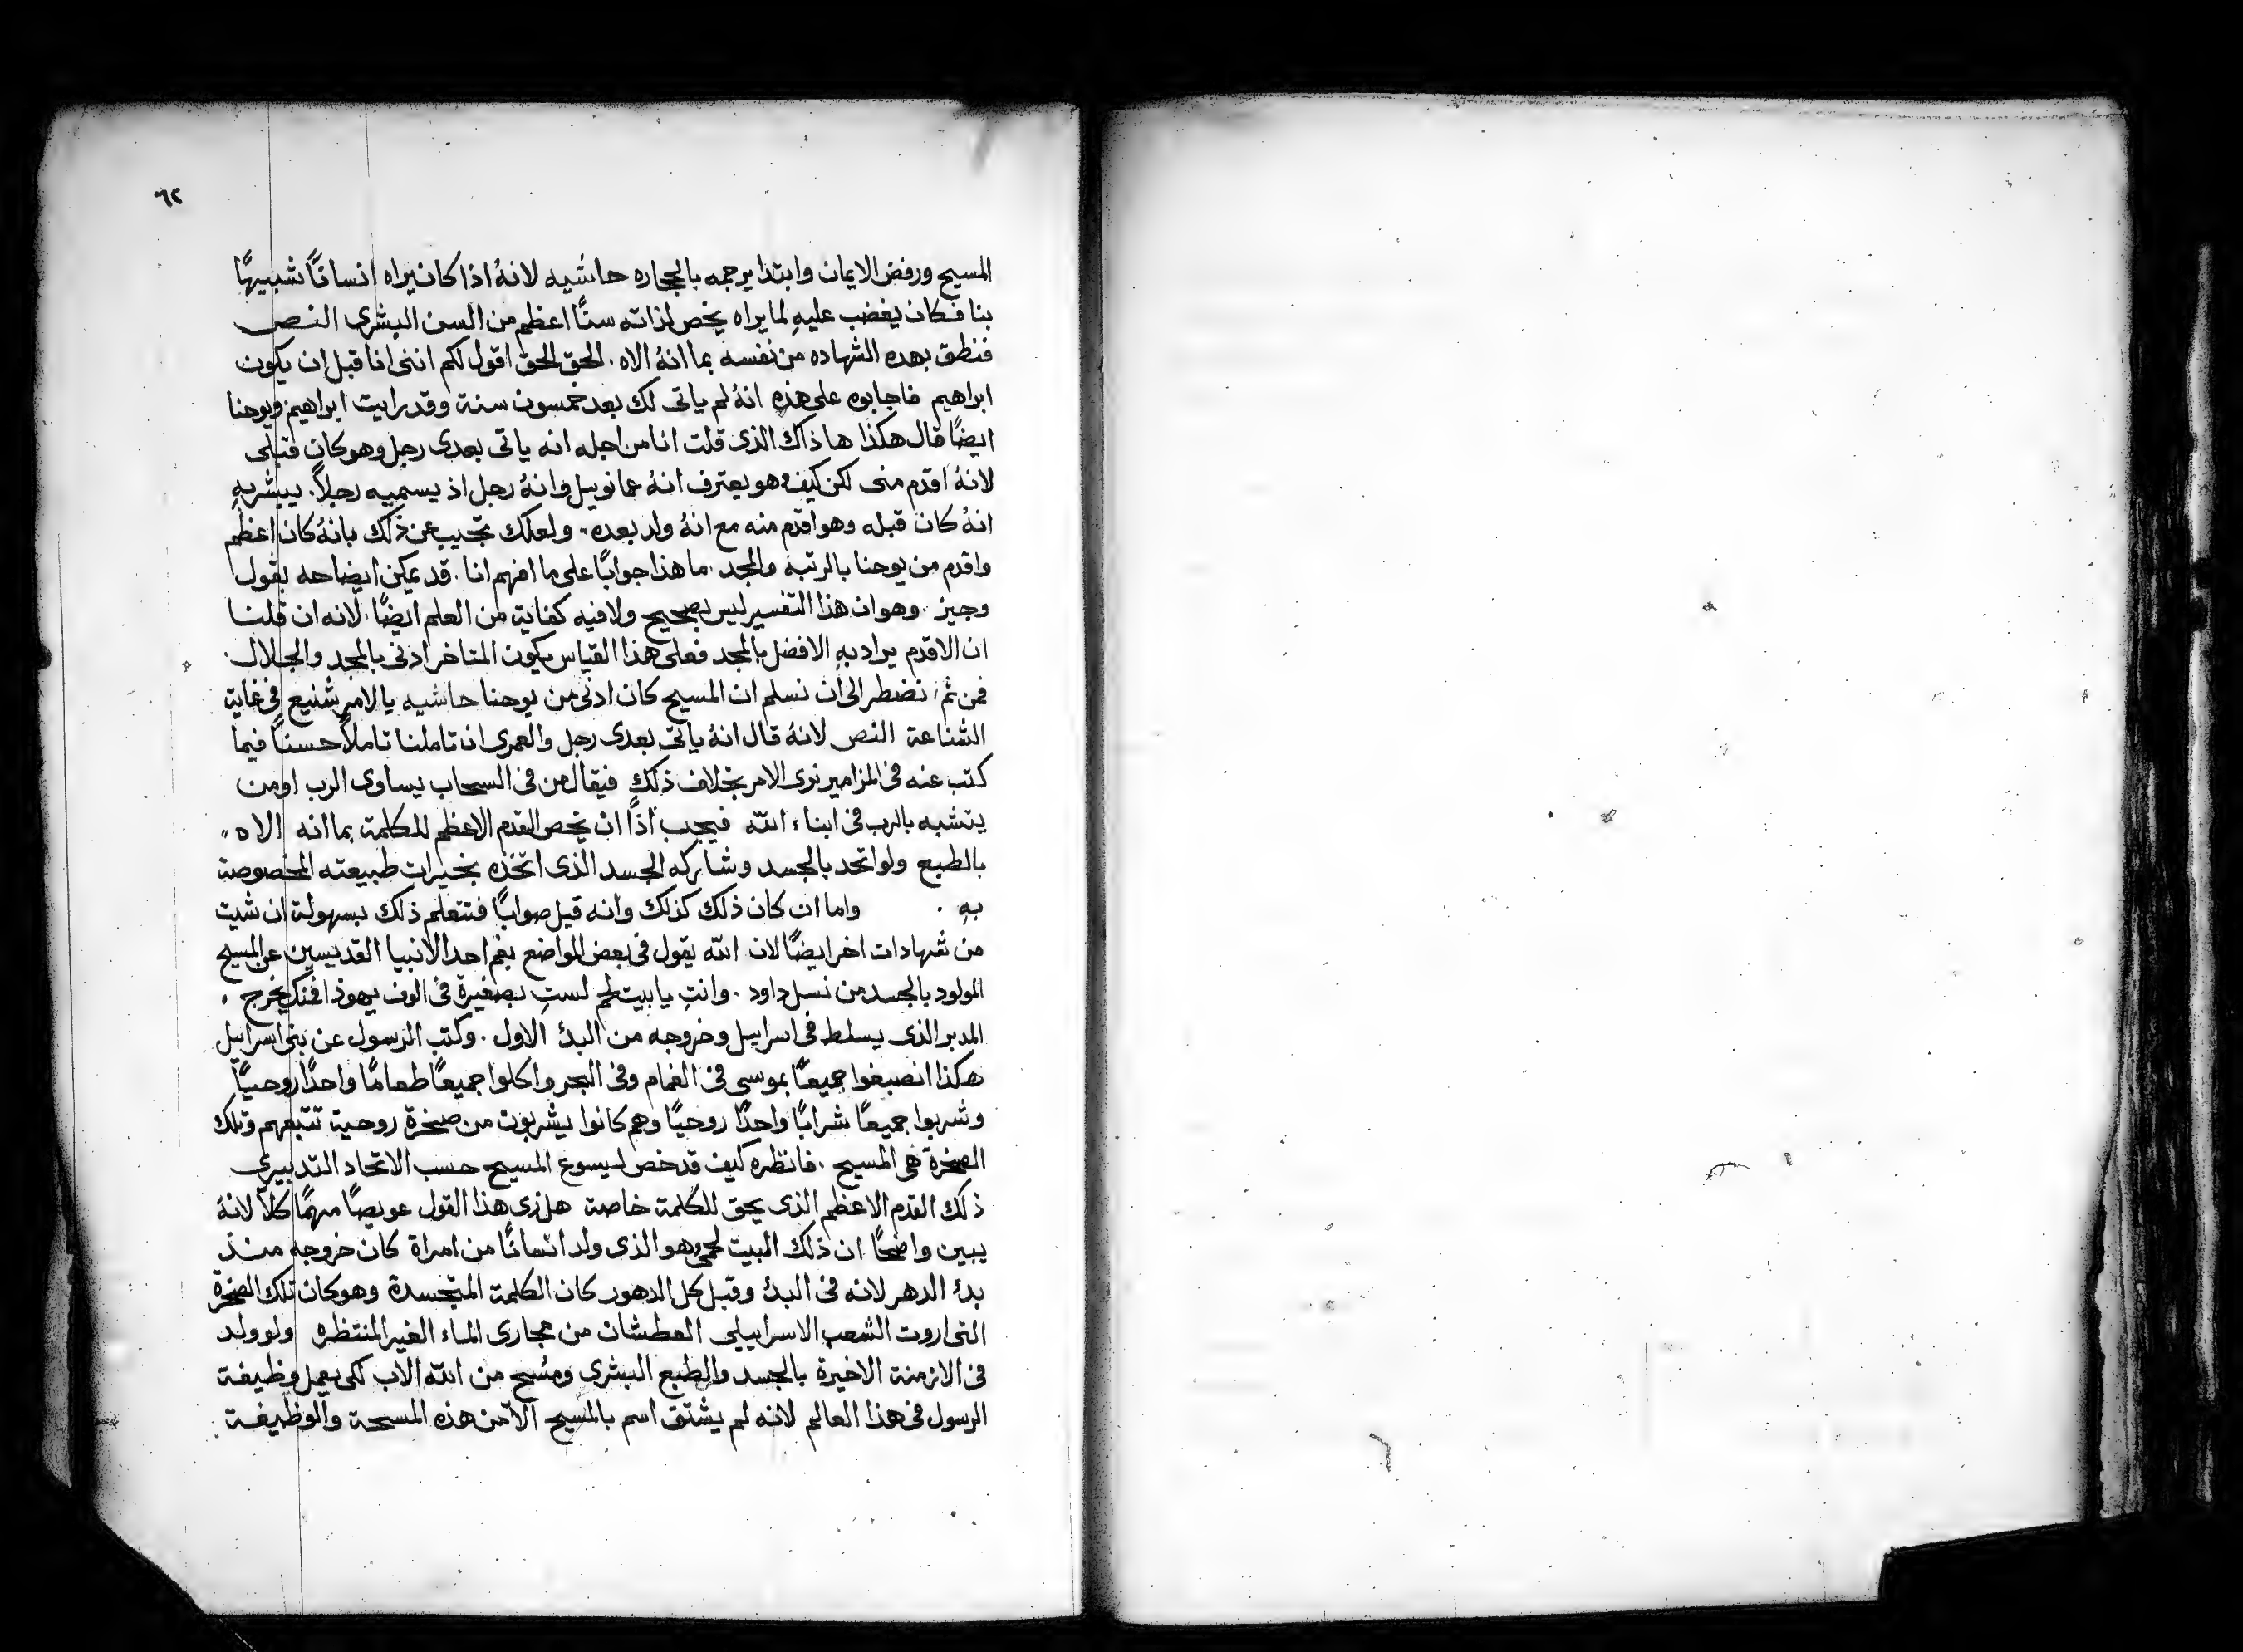 ٦٢
المسيح ورفض الايمان وابتدا يرجمه بالحجاره حاشيه لانهُ اذا كان يراه انسانًا شبيهًا
بنا فكان يغضب عليهِ لما يراه يخص لذاته سنًّا اعظم من السن البشرى النص
فنطق بهده الشهاده من نفسه بما انهُ الاه . الحق الحق اقول لكم اننى انا قبل ان يكون
ابراهيم فاجابوه على هذهِ انهُ لم ياتى لك بعد خمسون سنة وقد رايت ابراهيم ويوحنا
ايضًا قال هكذا ها ذاك الذى قلت انا من اجله انه ياتى بعدى رجل وهو كان قبلى
لانهُ اقدم منى لكن كيف وهو يعترف انهُ عمانوييل وانهُ رجل اذ يسميه رجلاً . يبشر بهِ
انهُ كان قبله وهو اقدم منه مع انهُ ولد بعده . ولعلك تجيب عن ذلك بانهُ كان اعظم
واقدم من يوحنا بالرتبه والمجد . ما هذا جوابًا على ما افهم انا . قد يمكن ايضاحه بقول
وجيز . وهو ان هذا التفسير ليس بصحيح ولا فيه كفاية من العلم ايضًا . لانه ان قلنا
ان الاقدم يراد بهِ الافضل بالمجد فعلى هذا القياس يكون المتاخر ادنى بالمجد والجلال .
فمن ثم نضطر الى ان نسلم ان المسيح كان ادنى من يوحنا حاشيه يا لامر شنيع فى غاية
الشناعة النص لانهُ قال انهُ ياتى بعدى رجل والعمرى ان تاملنا تاملاً حسنًا فيما
كتب عنه فى المزامير نرى الامر بخلاف ذلك فيقال من فى السحاب يساوى الرب او من
يتشبه بالرب فى ابناء الله فيجب اذًا ان يخص القدم الاعظم للكلمة بما انه الاه
بالطبع ولو اتحد بالجسد وشاركه الجسد الذى اتخذه بخيرات طبيعته المخصوصة
بهِ . واما ان كان ذلك كذلك وانه قيل صوابًا فتتعلم ذلك بسهولة ان شيت
من شهادات اخر ايضًا لان الله يقول فى بعض المواضع بفم احد الانبيا القديسين عن المسيح
المولود بالجسد من نسل داود . وانتِ يا بيت لحم لستِ بصغيرة فى الوف يهوذا فمنك يخرج
المدبر الذى يسلط فى اسراييل وخروجه من البدئ الاول . وكتب الرسول عن بنى اسراييل
هكذا انصبغوا جميعًا بموسى فى الغمام وفى البحر واكلوا جميعًا طعامًا واحدًا روحيًا
وشربوا جميعًا شرابًا واحدًا روحيًا وهم كانوا يشربون من صخرة روحية تتبعهم وتلك
الصخرة هى المسيح . فانظره كيف قد خص ليسوع المسيح حسب الاتحاد التدبيرى
ذلك القدم الاعظم الذى يحق للكلمة خاصة هل نرى هذا القول عويصًا مبهمًا كلا لانهُ
يبين واضحًا ان ذلك البيت لحمى هو الذى ولد انسانًا من امراة كان خروجه منذ
بدئ الدهر لانه فى البدئ وقبل كل الدهور كان الكلمة المتجسدة وهو كان تلك الصخرة
التى اروت الشعب الاسراييلى العطشان من مجارى الماء الغير المنتظره ولو ولد
فى الازمنة الاخيرة بالجسد والطبع البشرى ومُسح من الله الاب لكى يعمل وظيفة
الرسول فى هذا العالم لانه لم يشتق اسم بالمسيح الا من هذه المسحة والوظيفة